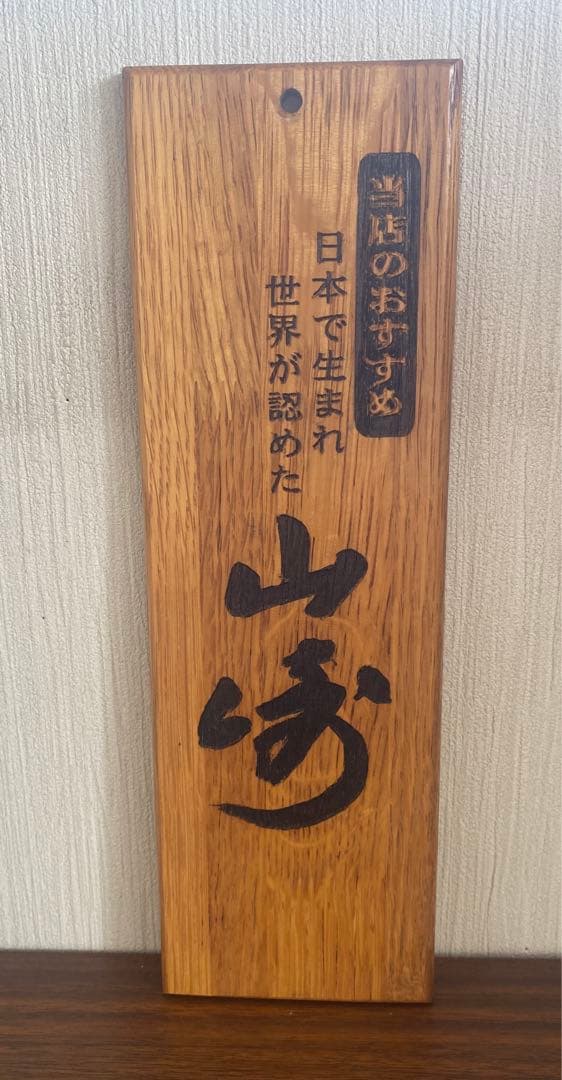 当店のおすすめ
日本で生まれ
世界が認めた
山崎